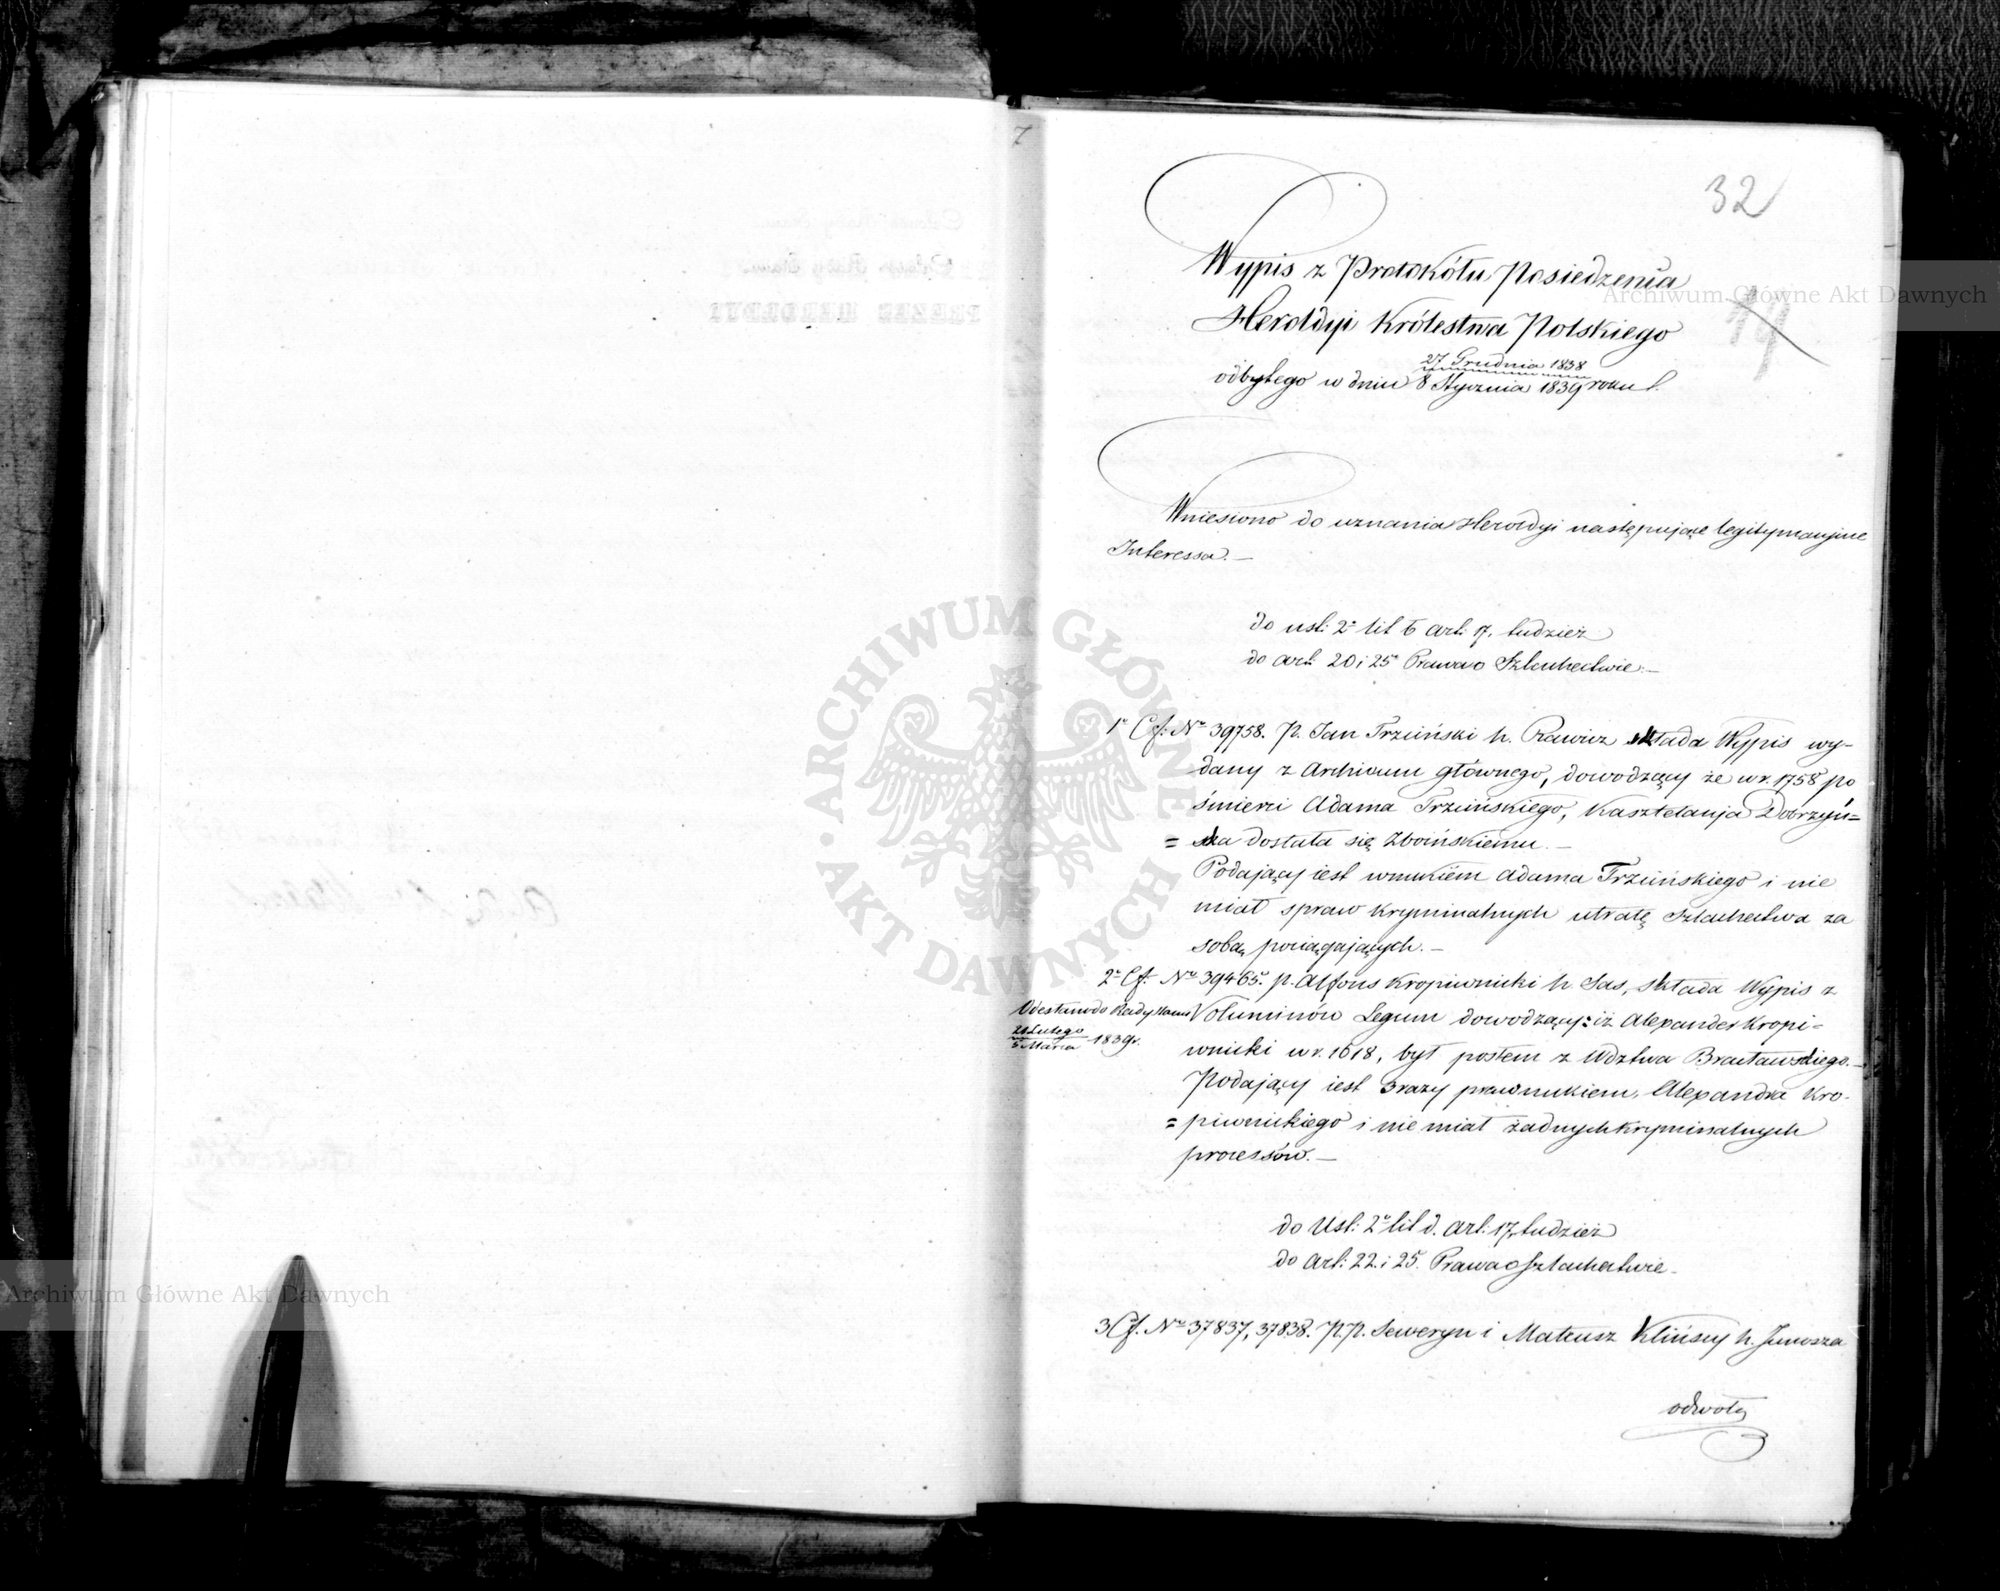 7
32
19
Wypis z Protokółu Posiedzenia
Heroldyi Królestwa Polskiego
27 Grudnia 1838
odbytego w dniu 8 Stycznia 1839 roku
Wniesiono do uznania Heroldyi następujące legitymacyjne
Interessa. —
do ust: 2º lit b art: 17. tudzież
do art: 20 i 25 Prawa o Szlachectwie. —
1º Cf: Nº 39758. P. Jan Trzciński h. Rawicz składa Wypis wy-
dany z Archiwum głównego, dowodzący że w r. 1758 po
śmierci Adama Trzcińskiego, Kasztelanja Dobrzyń=
= ska dostała się Zboińskiemu. —
Podający iest wnukiem Adama Trzcińskiego i nie
miał spraw kryminalnych utratę Szlachectwa za
sobą pociągających. —
2º Cf: Nº 39465. p. Alfons Kropiwnicki h. Sas, składa Wypis z
Odesłano do Rady Stanu
20 Lutego
5 Marca 1839 r.
Voluminów Legum dowodzący: iż Alexander Kropi=
wnicki w r. 1618, był posłem z Wdztwa Bracławskiego. —
Podający iest 3 razy prawnukiem, Alexandra Kro-
= piwnickiego i nie miał żadnych kryminalnych
processów. —
do Ust: 2º lit d. art: 17, tudzież
do art: 22 i 25. Prawa o Szlachectwie -
3 Cf. Nº 37837, 37838. P.P. Seweryn i Mateusz Klińscy h. Junosza
odwołą
Archiwum Główne Akt Dawnych
Archiwum Główne Akt Dawnych
ARCHIWUM GŁÓWNE · AKT DAWNYCH